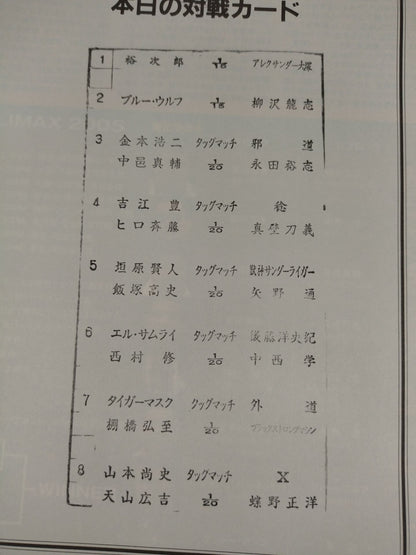 本日の対戦カード
1 裕次郎 1/15 アレクサンダー大塚
2 ブルー・ウルフ 1/15 柳沢龍志
3 金本浩二 タッグマッチ 邪道
中邑真輔 1/20 永田裕志
4 吉江豊 タッグマッチ 稔
ヒロ斉藤 1/20 真壁刀義
5 垣原賢人 タッグマッチ 獣神サンダーライガー
飯塚高史 1/20 矢野通
6 エル・サムライ タッグマッチ 後藤洋央紀
西村修 1/20 中西学
7 タイガーマスク タッグマッチ 外道
棚橋弘至 1/20
8 山本尚史 タッグマッチ X
天山広吉 1/20 蝶野正洋